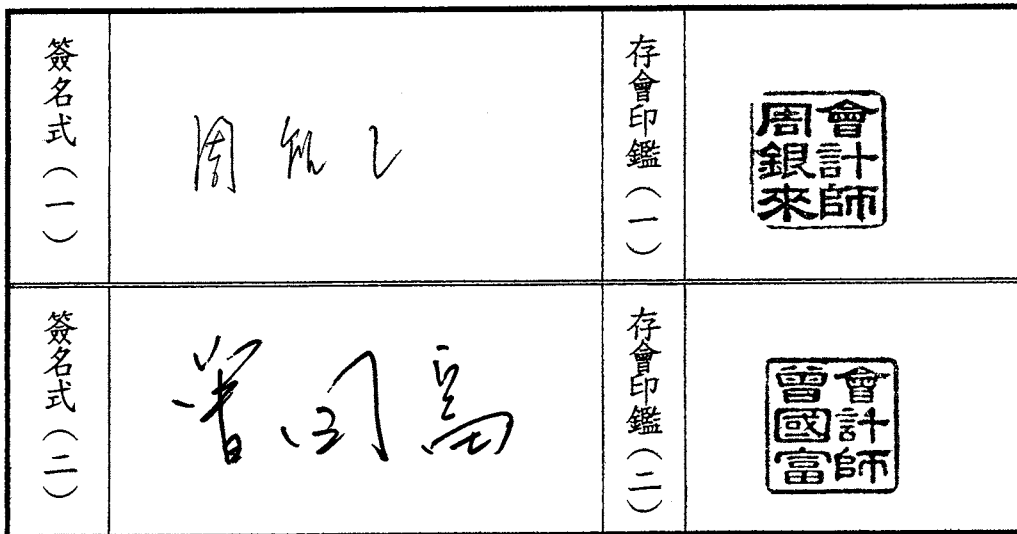 簽名式（一）
周銀來
存會印鑑（一）
會計師
周銀來
簽名式（二）
曾國富
存會印鑑（二）
會計師
曾國富